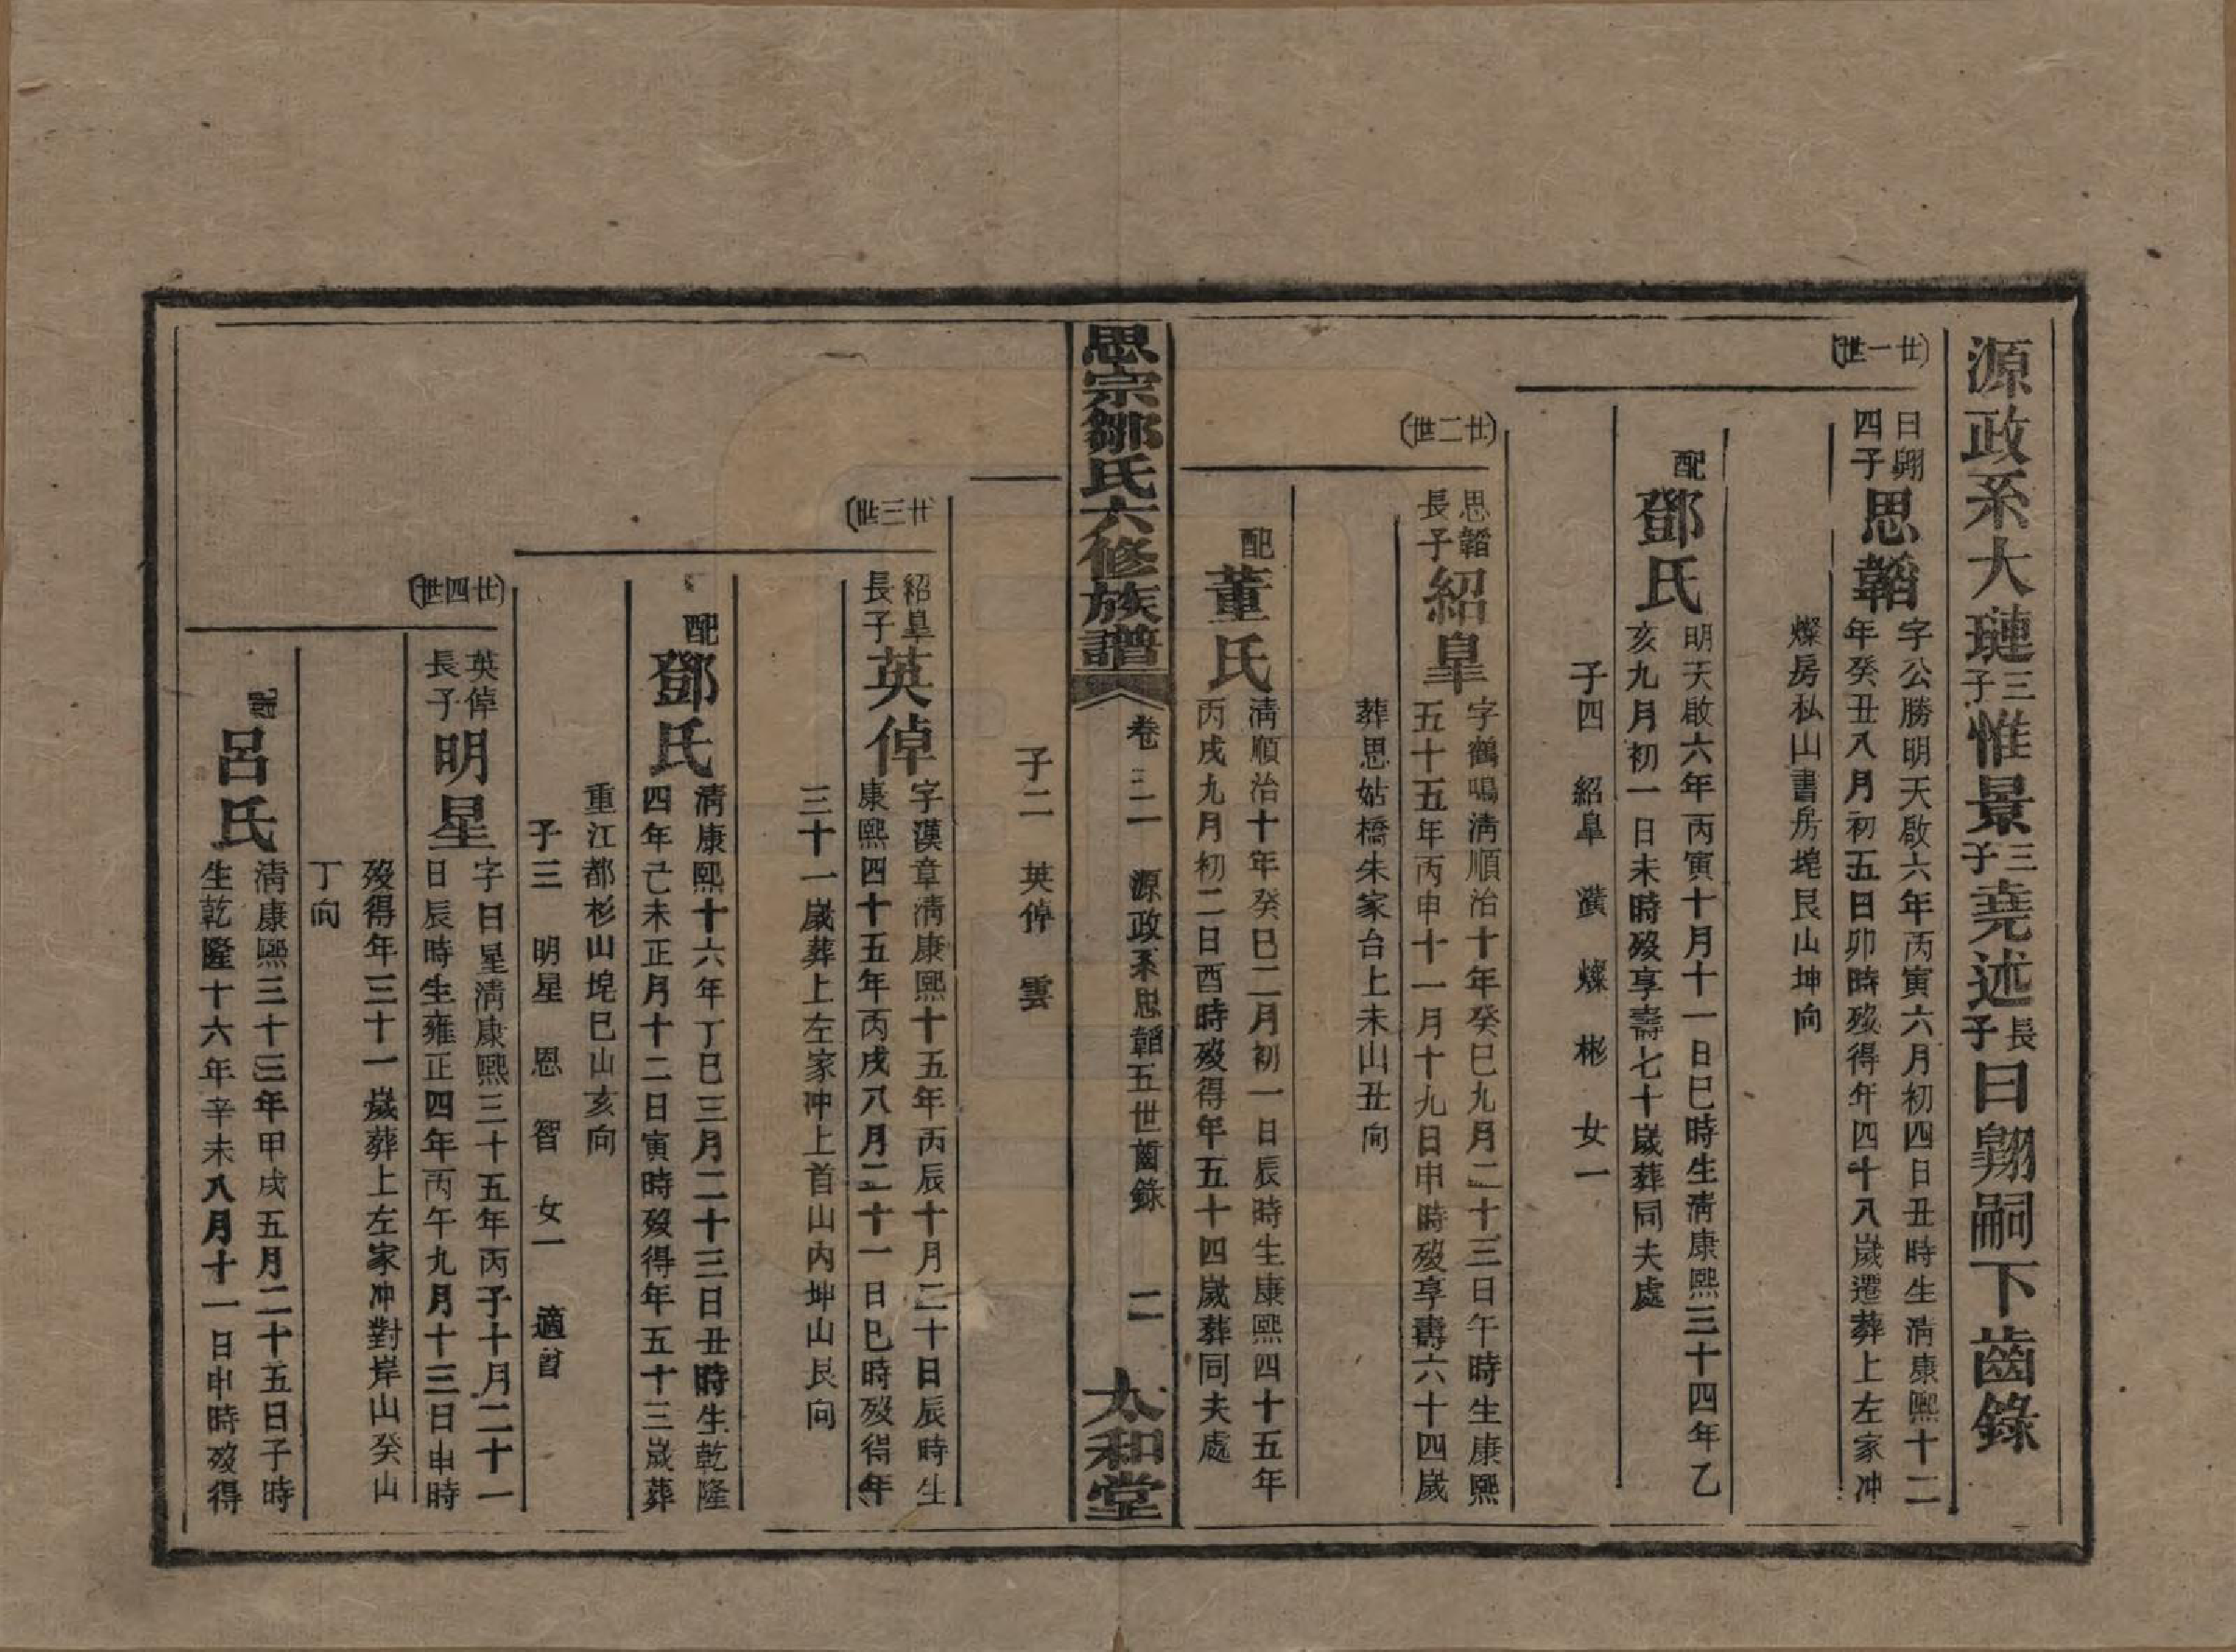 源政系大璉三子惟景三子堯述長子曰翺嗣下齒錄
廿一世
曰翺四子
思韜
字公勝明天啟六年丙寅六月初四日丑時生淸康熙十二
年癸丑八月初五日卯時歿得年四十八歲遷葬上左家冲
燦房私山書房垸艮山坤向
配
鄧氏
明天啟六年丙寅十月十一日巳時生淸康熙三十四年乙
亥九月初一日未時歿享壽七十歲葬同夫處
子四 紹臯 燦 彬 女一
廿二世
思韜長子
紹臯
字鶴鳴淸順治十年癸巳九月二十三日午時生康熙
五十五年丙申十一月十九日申時歿享壽六十四歲
葬思姑橋朱家台上未山丑向
配
董氏
淸順治十年癸巳二月初一日辰時生康熙四十五年
丙戌九月初二日酉時歿得年五十四歲葬同夫處
思宗鄒氏六修族譜
卷三二 源政系思韜五世齒錄 二
太和堂
子二 英倬 雲
廿三世
紹臯長子
英倬
字漢章淸康熙十五年丙辰十月二十日辰時生
康熙四十五年丙戌八月二十一日巳時歿得年
三十一歲葬上左家冲上首山內坤山艮向
配
鄧氏
淸康熙十六年丁巳三月二十三日丑時生乾隆
四年己未正月十二日寅時歿得年五十三歲葬
重江都杉山垸巳山亥向
子三 明星 恩 智 女一 適
廿四世
英倬長子
明星
字日星淸康熙三十五年丙子十月二十一
日辰時生雍正四年丙午九月十三日申時
歿得年三十一歲葬上左家冲對岸山癸山
丁向
配
呂氏
淸康熙三十三年甲戌五月二十五日子時
生乾隆十六年辛未八月十一日申時歿得